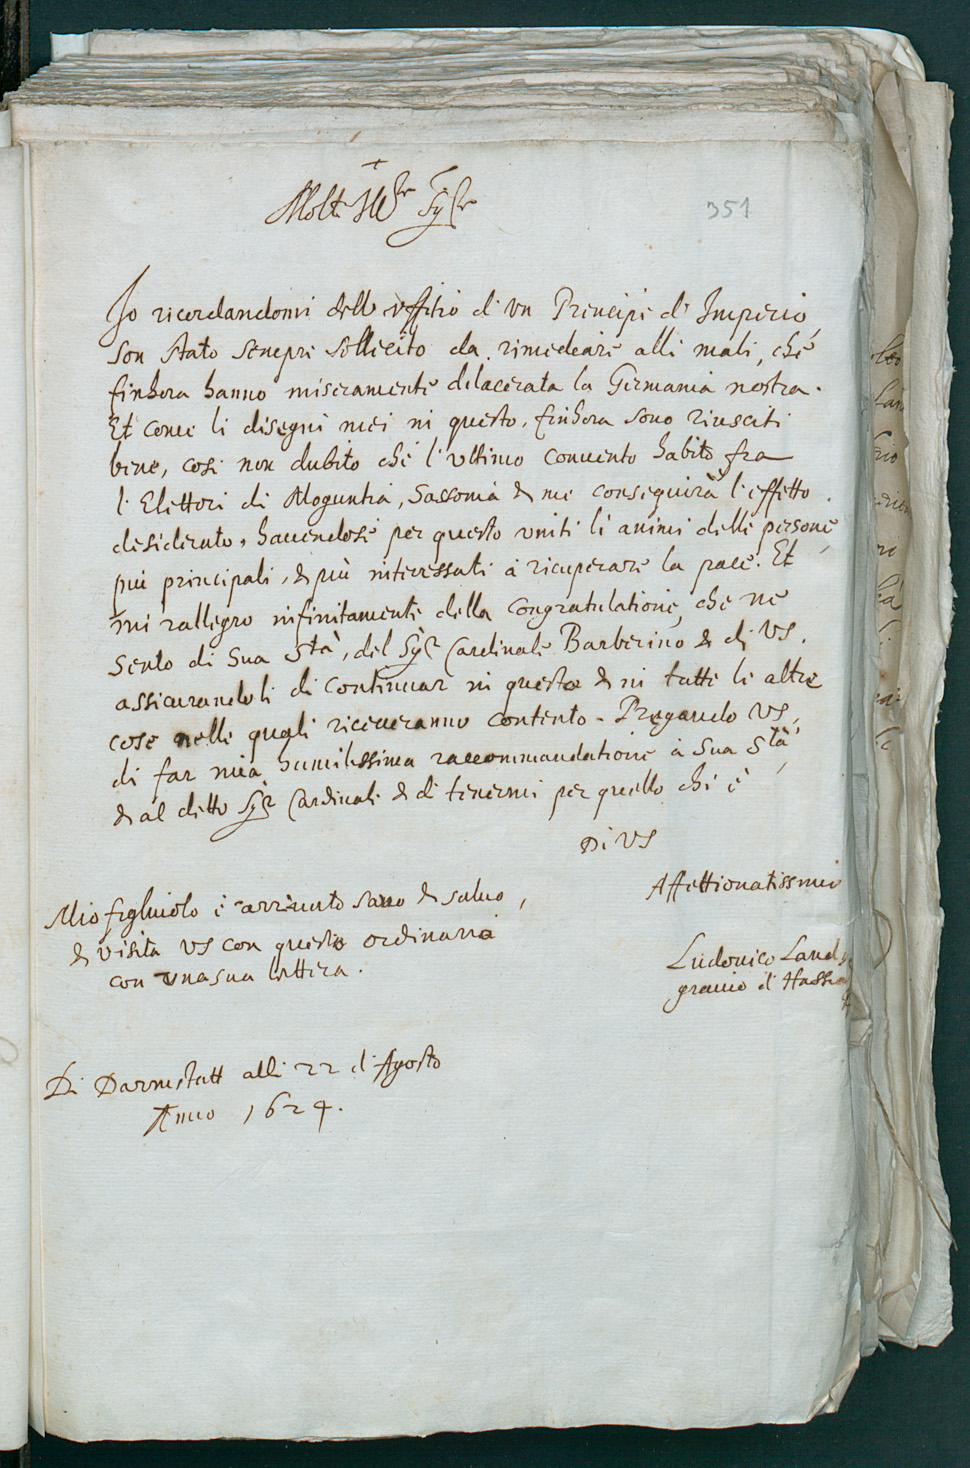 +
Molt Ill^re Sig^re
351
Io ricordandomi dello vffitio d'un Principe d'Imperio,
son stato sempre sollecito da rimediare alli mali, che
finhora hanno miseramente dilacerata la Germania nostra.
Et come li disegni miei in questo, finhora sono riusciti
bene, cosi non dubito che l'ultimo conuento habito fra
l'Elettori di Moguntia, Sassonia & me conseguirà l'effetto
desiderato, hauendosi per questo vniti li animi delle persone
piu principali, & più interessati à ricuperare la pace. Et
mi rallegro infinitamente della congratulatione, che ne
sento di Sua Stà, del Sig^r Cardinale Barberino & di VS.
assicurandoli di continuar in questo & in tutte le altre
cose nelle quali riceueranno contento. Pregando VS,
di far mia humilissima raccommandatione à Sua Stà,
& al detto Sig^r Cardinale & di tenermi per quello che è
Di VS
Affettionatissimo
Mio figliuolo è arriuato sano & saluo,
& visita VS con questo ordinario
con una sua lettera.
Ludouico Land
grauio d'Hassia
Di Darmstatt alli 22 d'Agosto
Anno 1624.